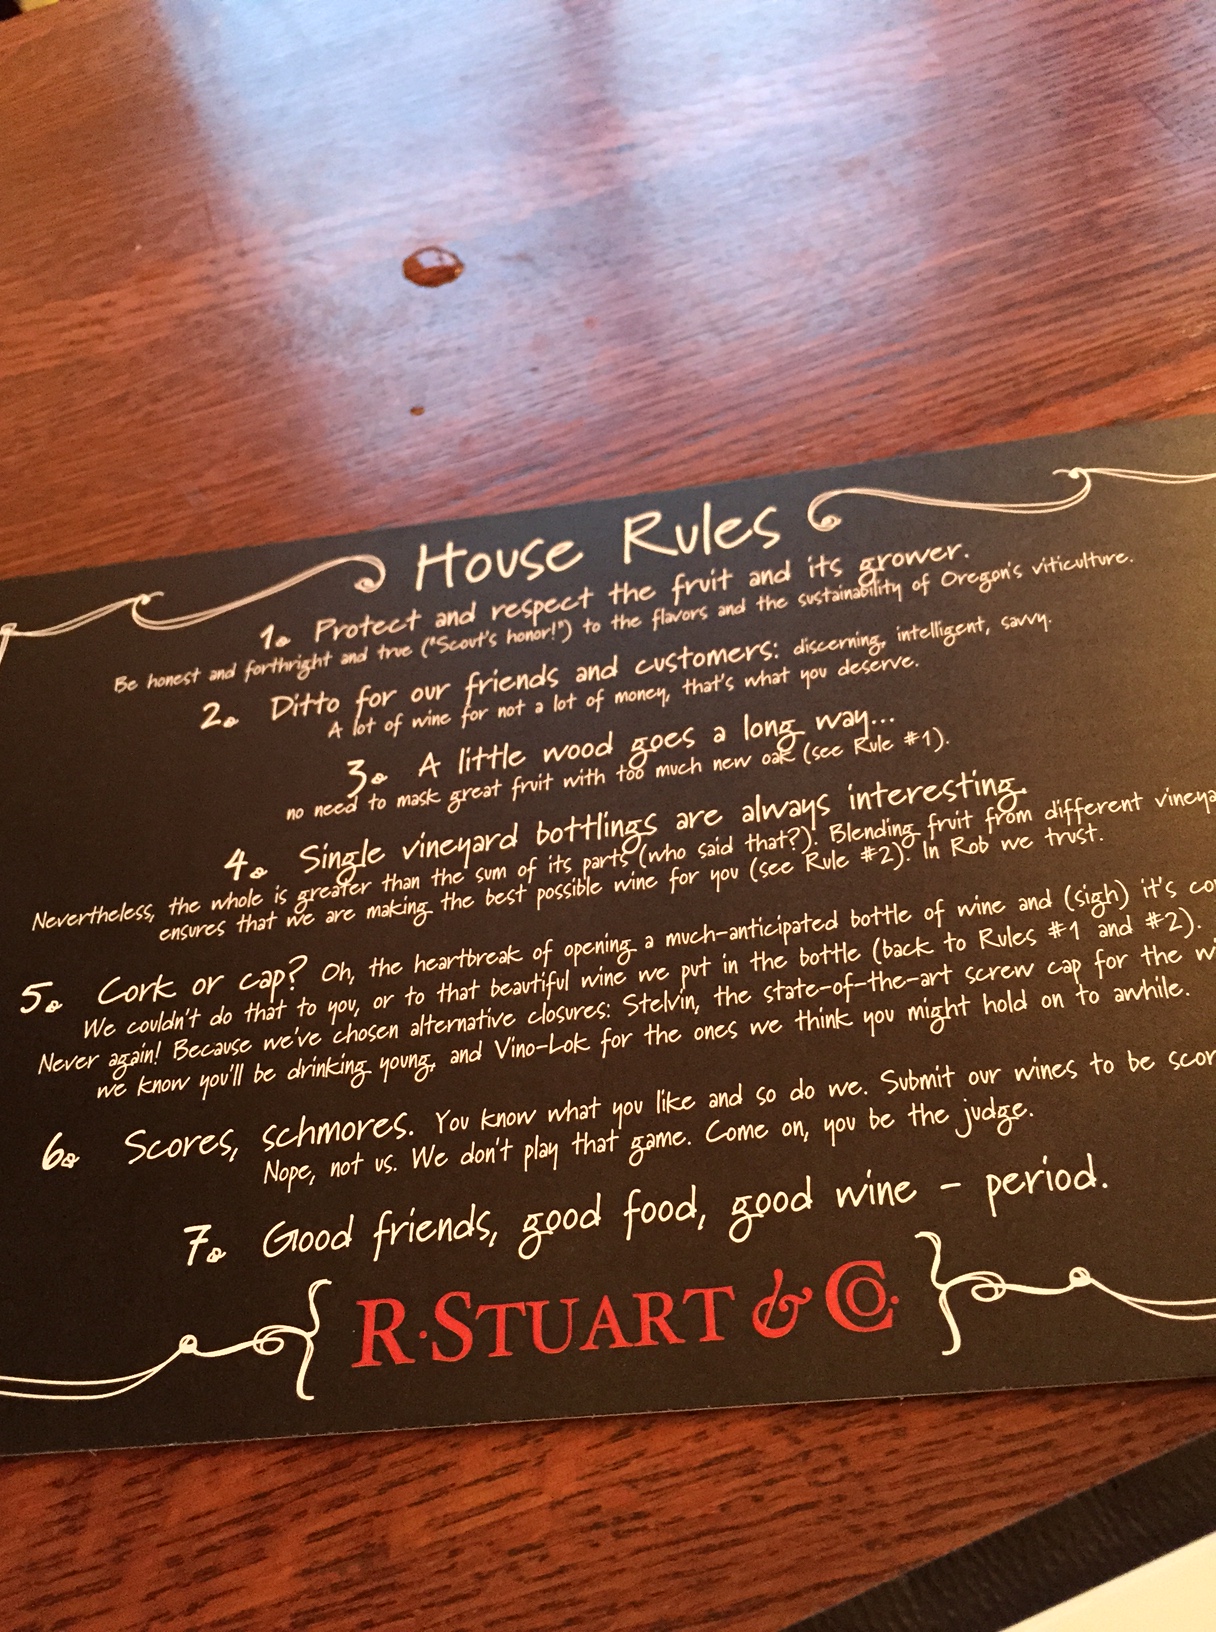 House Rules
1. Protect and respect the fruit and its grower.
Be honest and forthright and true ("Scout's honor!") to the flavors and the sustainability of Oregon's viticulture.
2. Ditto for our friends and customers: discerning, intelligent, savvy.
A lot of wine for not a lot of money, that's what you deserve.
3. A little wood goes a long way...
no need to mask great fruit with too much new oak (see Rule #1).
4. Single vineyard bottlings are always interesting.
Nevertheless, the whole is greater than the sum of its parts (who said that?). Blending fruit from different
ensures that we are making the best possible wine for you (see Rule #2). In Rob we trust.
5. Cork or cap? Oh, the heartbreak of opening a much-anticipated bottle of wine and (sigh) it's
We couldn't do that to you, or to that beautiful wine we put in the bottle (back to Rules #1 and #2).
Never again! Because we've chosen alternative closures: Stelvin, the state-of-the-art screw cap for the
we know you'll be drinking young, and Vino-Lok for the ones we think you might hold on to awhile.
6. Scores, schmores. You know what you like and so do we. Submit our wines to be
Nope, not us. We don't play that game. Come on, you be the judge.
7. Good friends, good food, good wine - period.
R. STUART & CO.